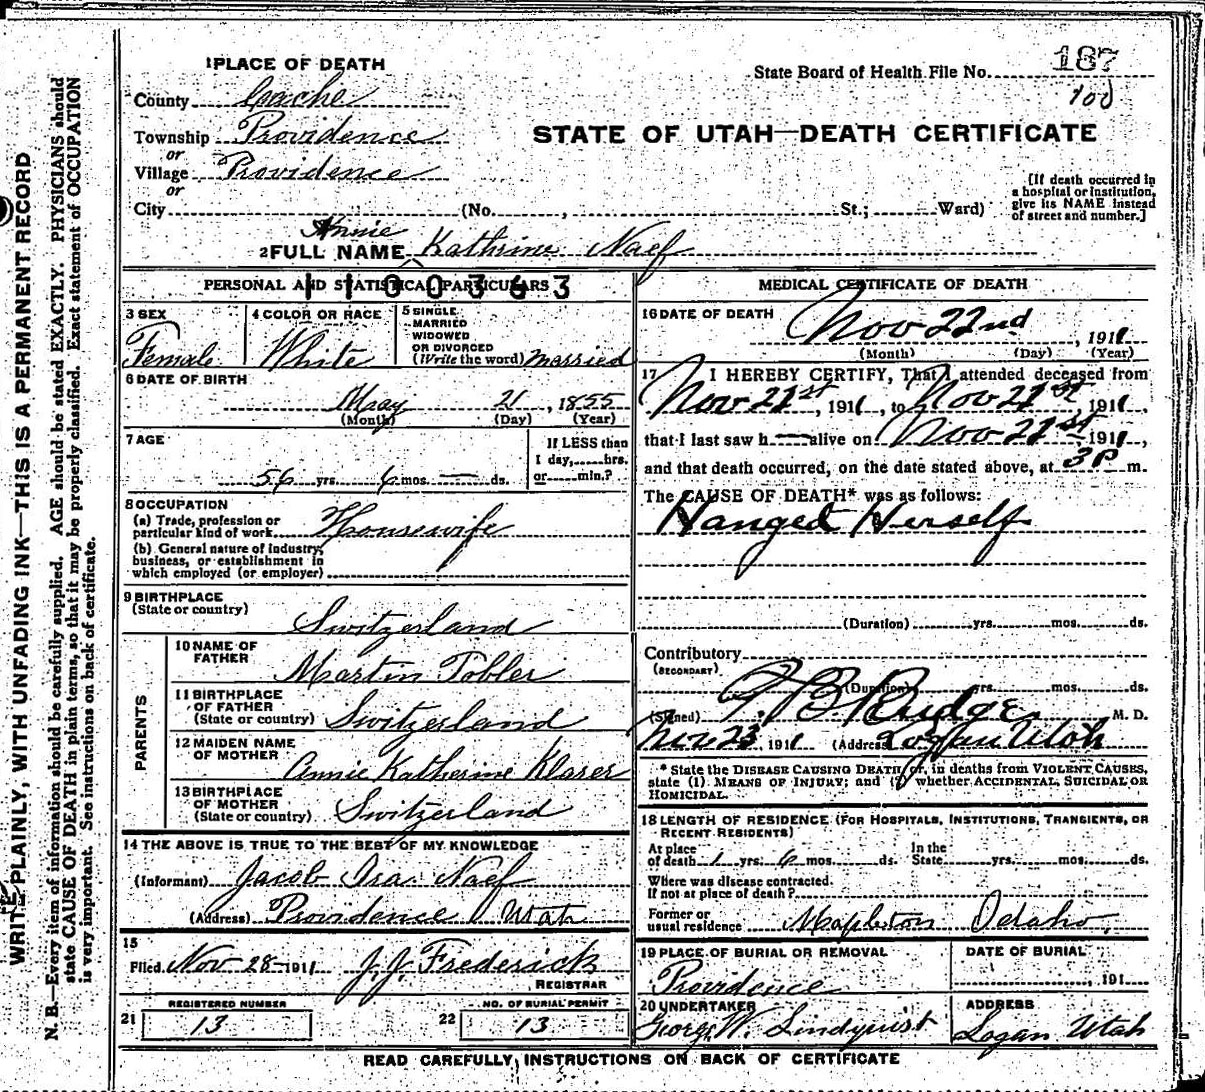 WRITE PLAINLY, WITH UNFADING INK—THIS IS A PERMANENT RECORD
N. B.—Every item of information should be carefully supplied. AGE should be stated EXACTLY. PHYSICIANS should
state CAUSE OF DEATH in plain terms, so that it may be properly classified. Exact statement of OCCUPATION
is very important. See instructions on back of certificate.
1 PLACE OF DEATH
County Cache
Township Providence
or
Village Providence
or
City (No. , St.; Ward)
State Board of Health File No. 187
100
STATE OF UTAH—DEATH CERTIFICATE
[If death occurred in
a hospital or institution,
give its NAME instead
of street and number.]
Annie
2 FULL NAME Kathrine Naef
PERSONAL AND STATISTICAL PARTICULARS
1100363
3 SEX
Female
4 COLOR OR RACE
White
5 SINGLE
MARRIED
WIDOWED
OR DIVORCED
(Write the word) married
6 DATE OF BIRTH
May 21, 1855
(Month) (Day) (Year)
7 AGE
56 yrs. 6 mos. — ds.
If LESS than
1 day, hrs.
or min.?
8 OCCUPATION
(a) Trade, profession or
particular kind of work Housewife
(b) General nature of industry,
business, or establishment in
which employed (or employer)
9 BIRTHPLACE
(State or country)
Switzerland
PARENTS
10 NAME OF
FATHER
Martin Tobler
11 BIRTHPLACE
OF FATHER
(State or country) Switzerland
12 MAIDEN NAME
OF MOTHER
Annie Katherine Klaser
13 BIRTHPLACE
OF MOTHER
(State or country) Switzerland
14 THE ABOVE IS TRUE TO THE BEST OF MY KNOWLEDGE
(Informant) Jacob Ira Naef
(Address) Providence Utah
15
Filed Nov 28 1911 J. J. Frederick
REGISTRAR
REGISTERED NUMBER
21 13
NO. OF BURIAL PERMIT
22 13
MEDICAL CERTIFICATE OF DEATH
16 DATE OF DEATH
Nov 22nd, 1911
(Month) (Day) (Year)
17 I HEREBY CERTIFY, That I attended deceased from
Nov 21st, 1911, to Nov 21st 1911,
that I last saw h — alive on Nov 21st 1911,
and that death occurred, on the date stated above, at 3 P m.
The CAUSE OF DEATH* was as follows:
Hanged Herself
(Duration) yrs. mos. ds.
Contributory
(SECONDARY)
(Duration) yrs. mos. ds.
(Signed) B Rudge M. D.
Nov 23, 1911 (Address) Logan Utah
* State the DISEASE CAUSING DEATH or, in deaths from VIOLENT CAUSES,
state (1) MEANS OF INJURY; and (2) whether ACCIDENTAL, SUICIDAL OR
HOMICIDAL.
18 LENGTH OF RESIDENCE (FOR HOSPITALS, INSTITUTIONS, TRANSIENTS, OR
RECENT RESIDENTS)
At place
of death 1 yrs. 6 mos. ds. In the State yrs. mos. ds.
Where was disease contracted.
If not at place of death?
Former or
usual residence Mapleton Idaho
19 PLACE OF BURIAL OR REMOVAL
Providence
DATE OF BURIAL
, 191
20 UNDERTAKER
George W. Lindquist
ADDRESS
Logan Utah
READ CAREFULLY INSTRUCTIONS ON BACK OF CERTIFICATE